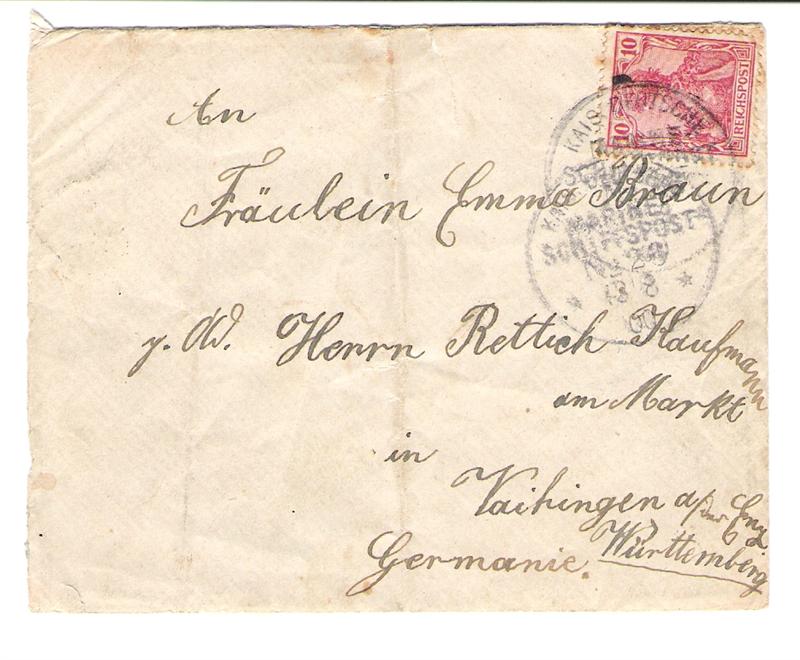 10 10
REICHSPOST
KAIS. DEUTSCHE
MARINE-
SCHIFFSPOST
An
Fräulein Emma Braun
Herrn Rettich Kaufmann
am Markt
in
Vaihingen a/der Enz
Germanie. Württemberg